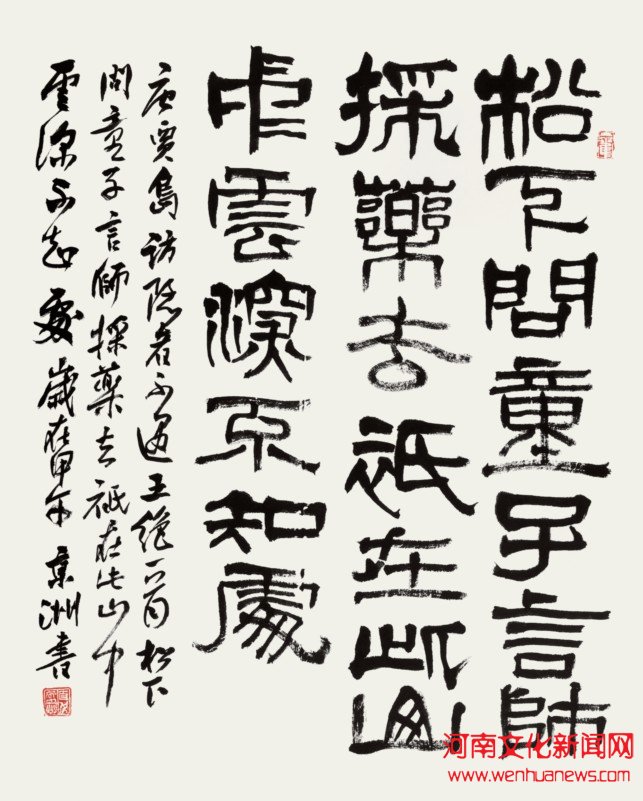 松下問童子言師
採藥去祇在此山
中雲深不知處
唐賈島訪隱者不遇五絕一首松下
問童子言師採藥去祇在此山中
雲深不知處歲在甲午京洲書
河南文化新闻网
www.wenhuanews.com